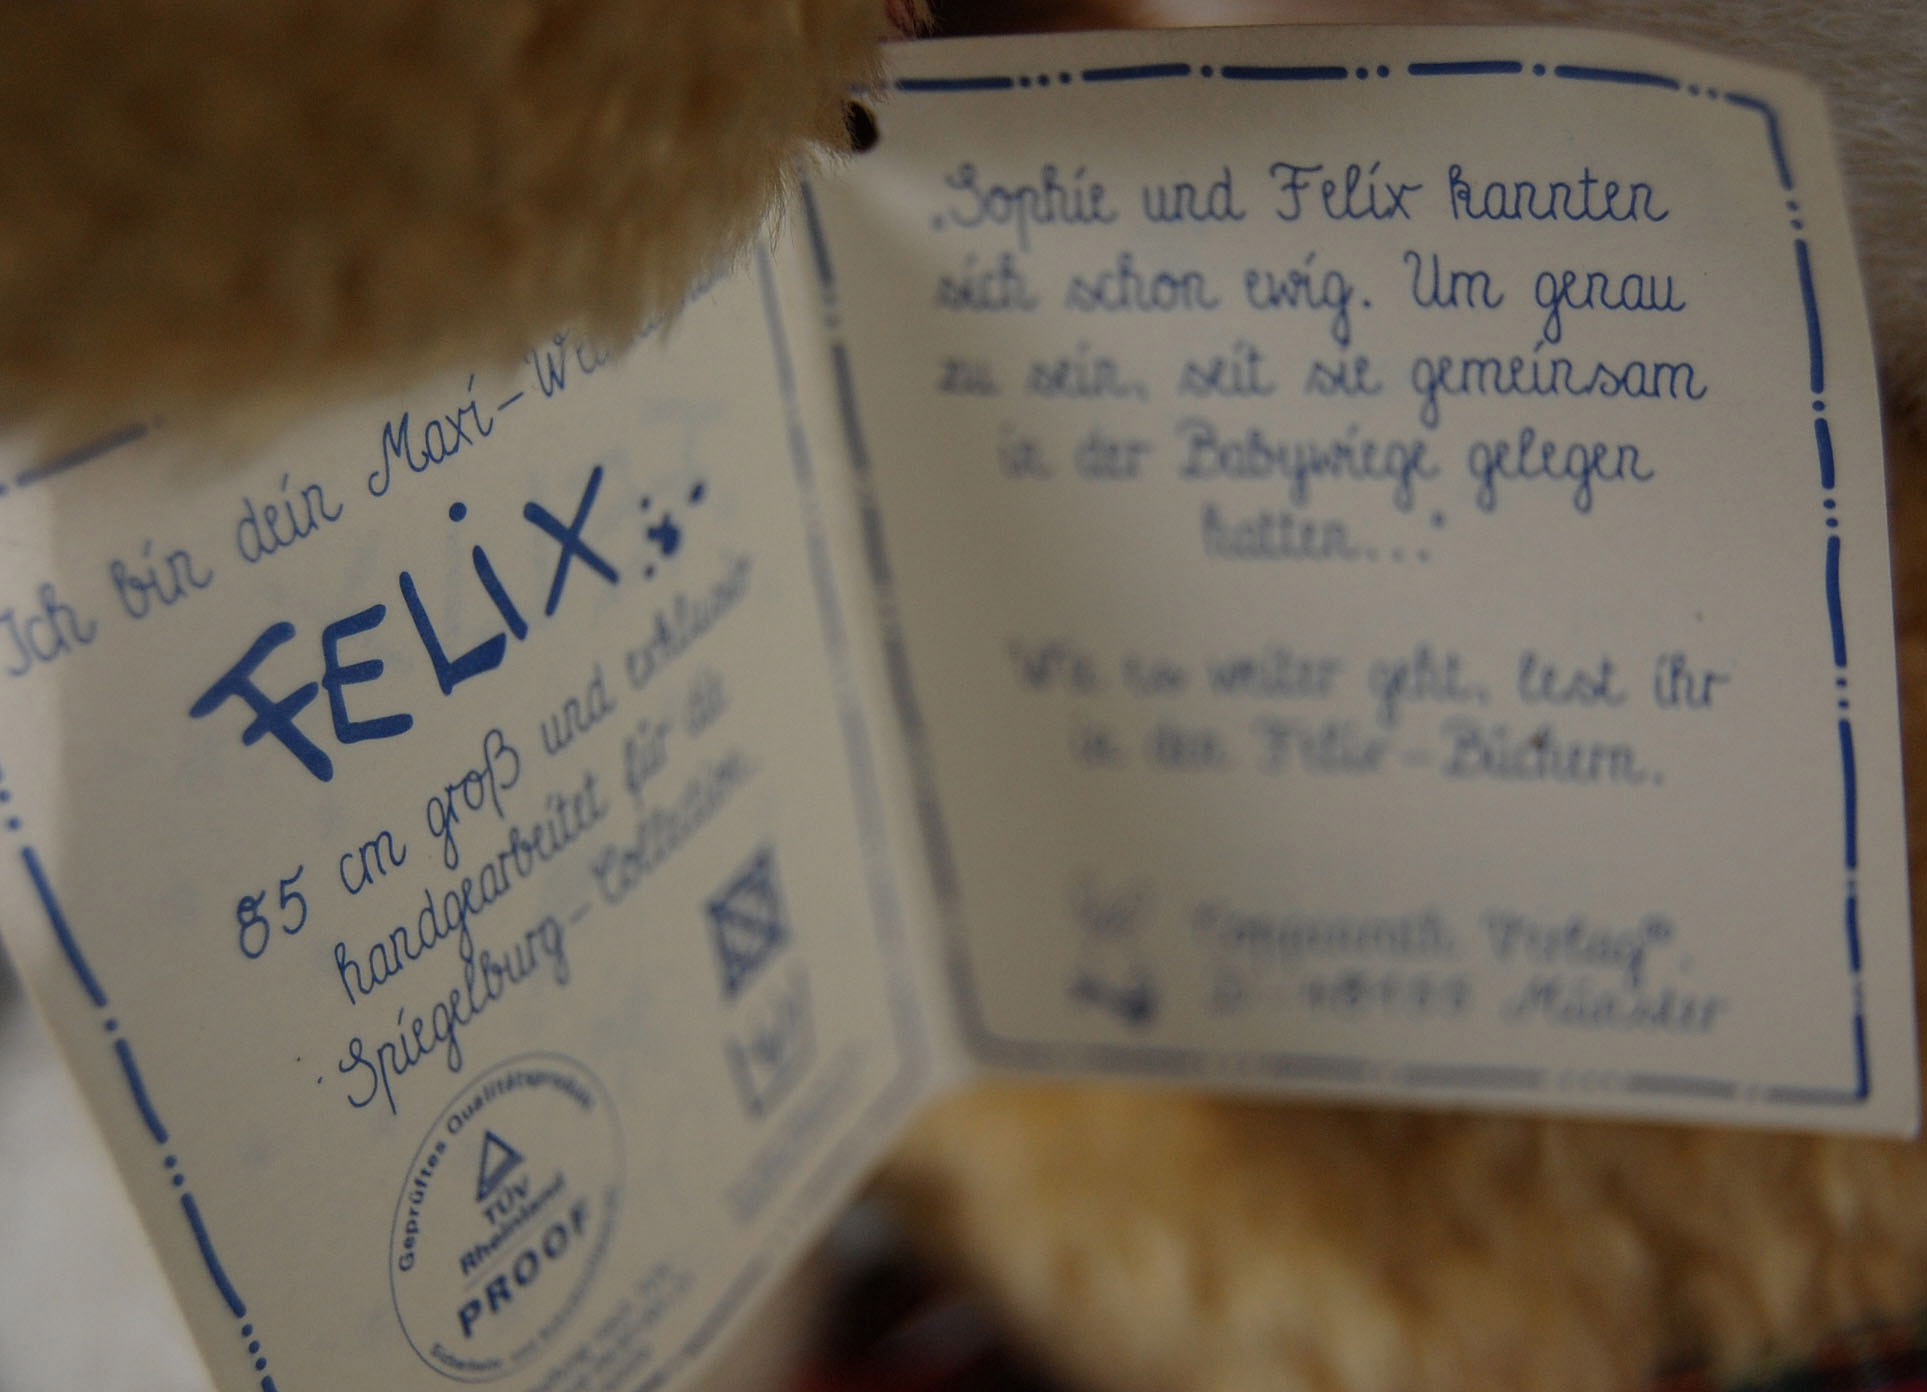 Ich bin dein Maxi-
FELIX
85 cm groß und exklusiv
handgearbeitet für die
Spiegelburg-Collection.
Geprüftes Qualitätsprodukt
TÜV
Rheinland
PROOF
„Sophie und Felix kannten
sich schon ewig. Um genau
zu sein, seit sie gemeinsam
in der Babywiege gelegen
hatten..."
Wie es weiter geht, lest ihr
in den Felix-Büchern.
Coppenrath Verlag®,
Münster